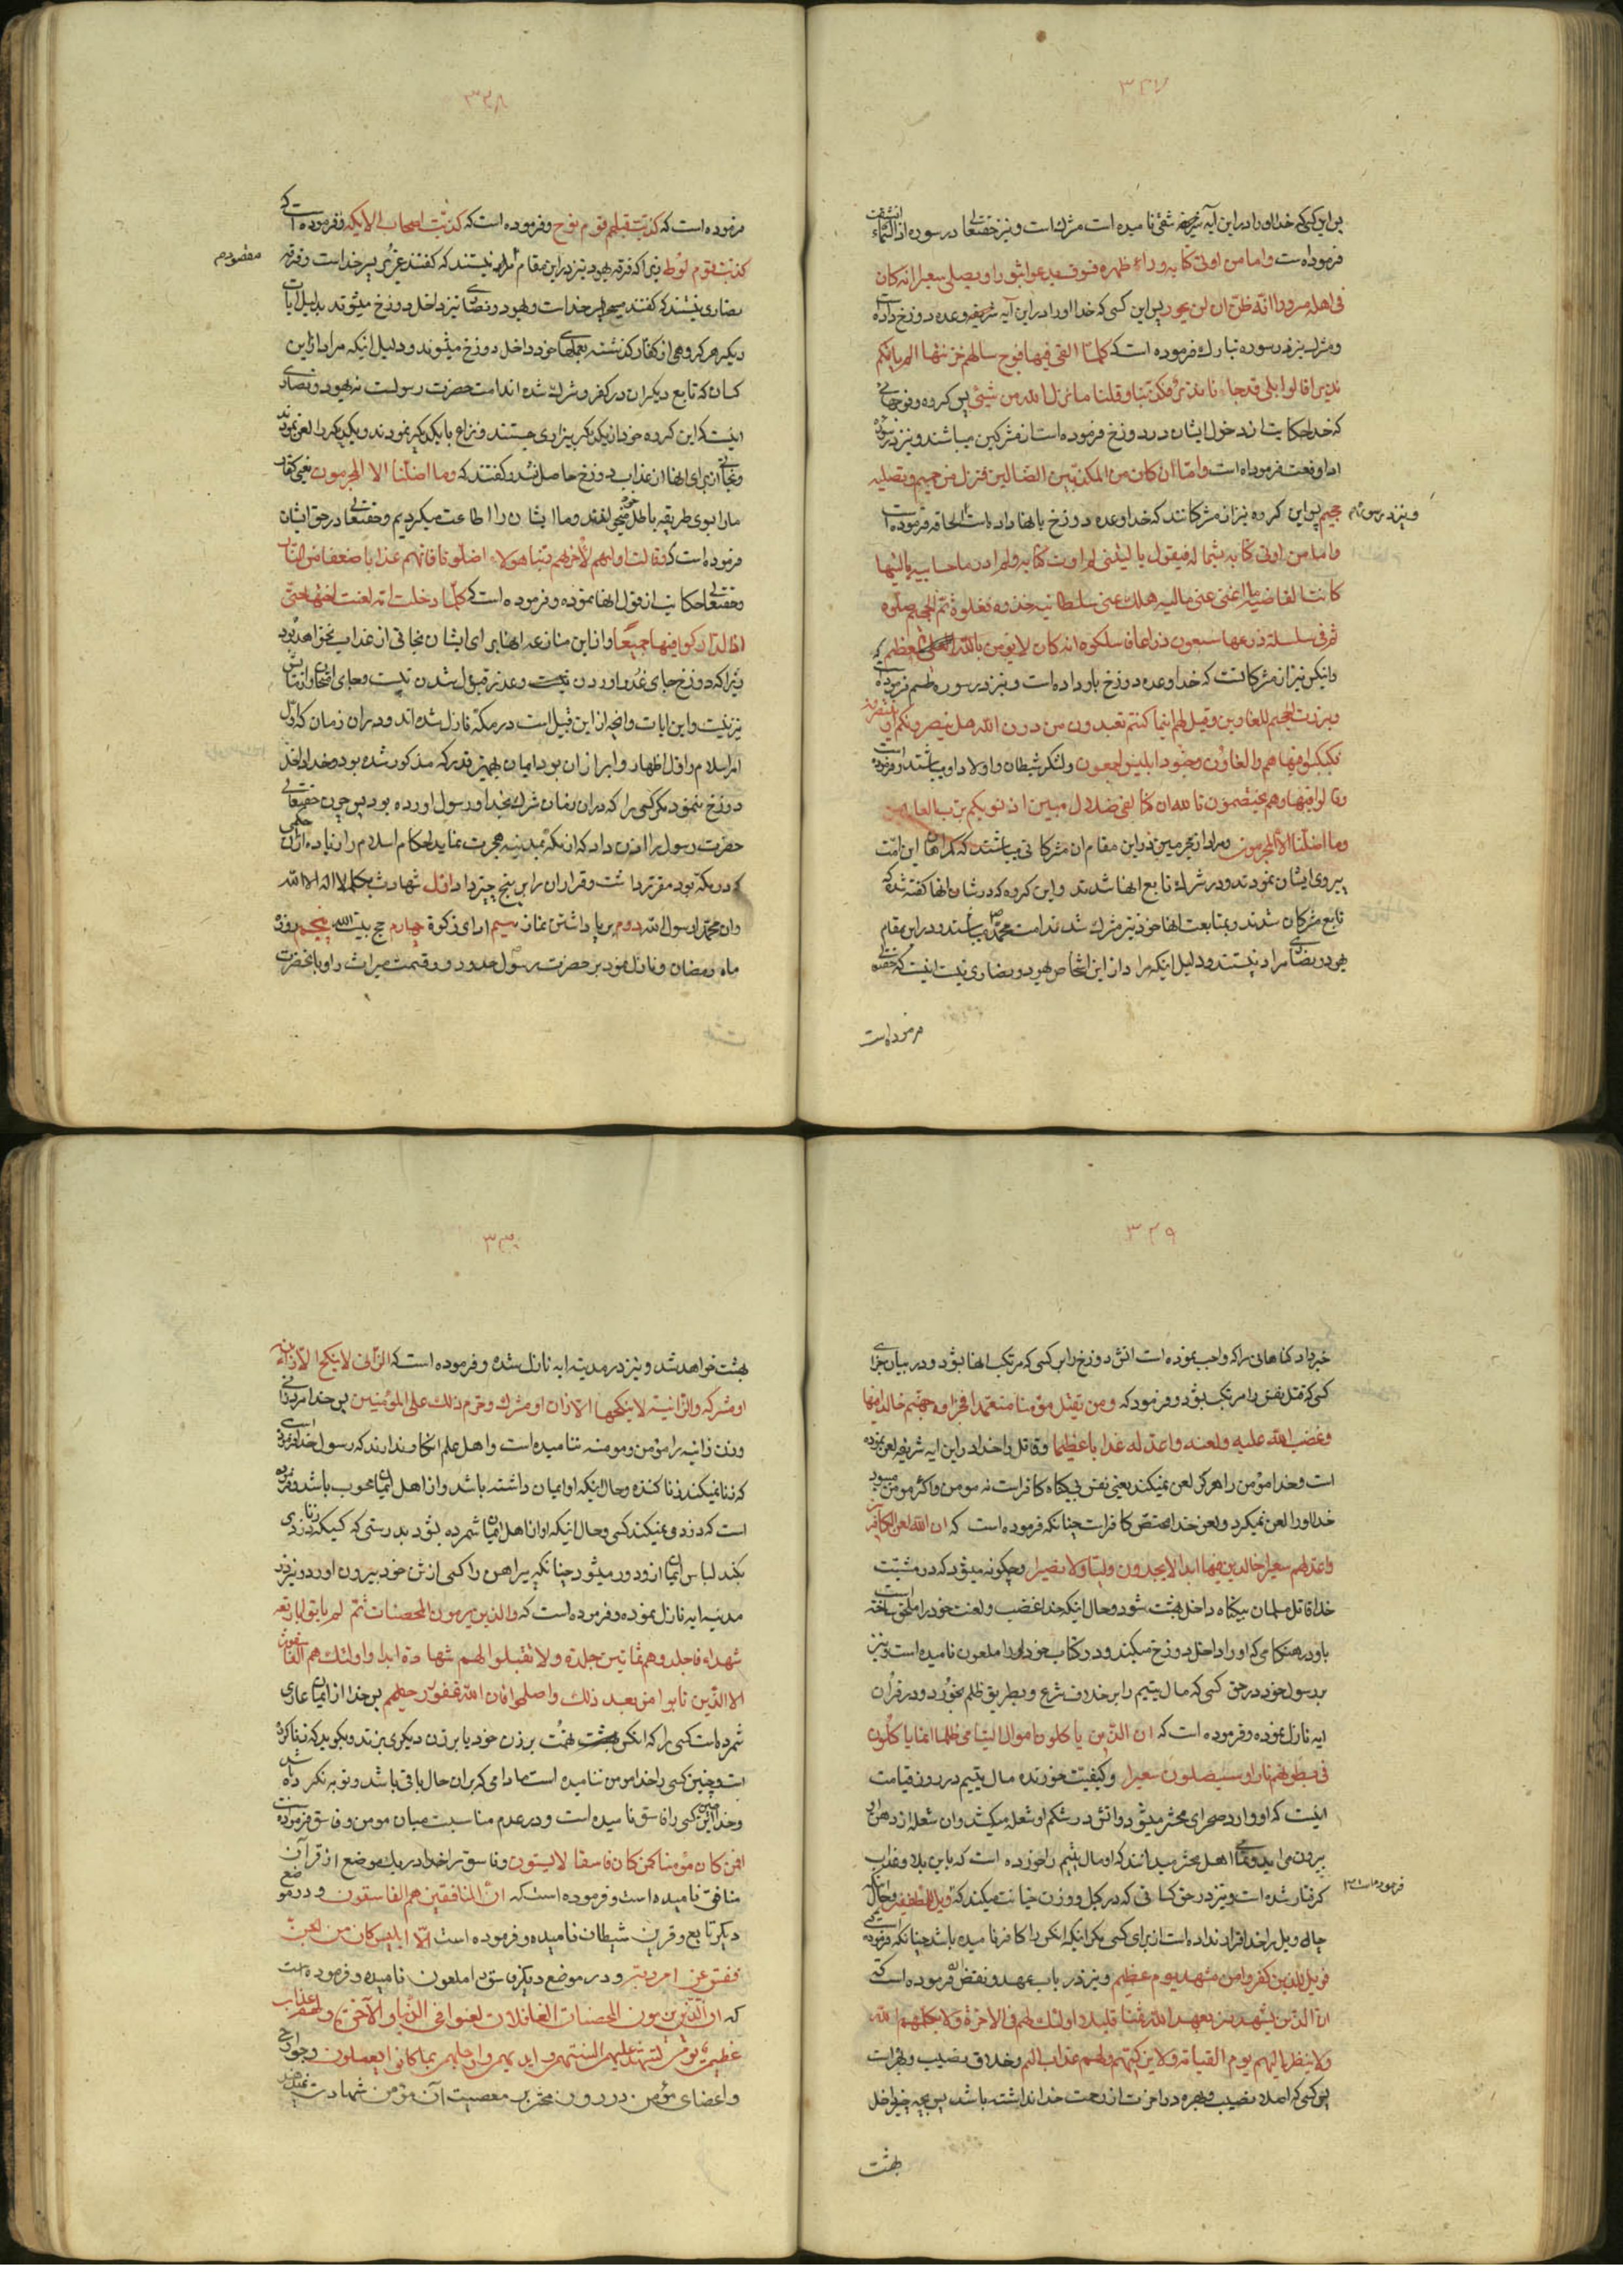 ۳۲۷
پس این کسی که خدا او را در این آیه شریفه شقی نامیده است مشرک است و نیز حقتعالی در سوره اذا السماء انشقت
فرموده است واما من اوتی کتابه وراء ظهره فسوف یدعوا ثبورا ویصلی سعیرا انه کان
فی اهله مسرورا انه ظن ان لن یحور پس این کسی که خدا او را در این آیه شریفه وعده دوزخ داده است
و مشرک نیز در سوره تبارک فرموده است که کلما القی فیها فوج سالهم خزنتها الم یاتکم
نذیر قالوا بلی قد جاءنا نذیر فکذبنا وقلنا ما نزل الله من شیئی پس گروه و فوجهائی
که خدا حکایت از دخول ایشان در دوزخ فرموده است از مشرکین میباشند و نیز در سوره
اذا وقعت فرموده است واما ان کان من المکذبین الضالین فنزل من حمیم وتصلیه
جحیم پس این گروه نیز از مشرکانند که خدا وعده دوزخ بانها داده است و نیز در سوره الحاقه فرموده است
واما من اوتی کتابه بشماله فیقول یا لیتنی لم اوت کتابیه ولم ادر ما حسابیه یا لیتها
کانت القاضیه ما اغنی عنی مالیه هلک عنی سلطانیه خذوه فغلوه ثم الجحیم صلوه
ثم فی سلسلة ذرعها سبعون ذراعا فاسلکوه انه کان لا یؤمن بالله العظیم
و اینکس نیز از مشرکانست که خدا وعده دوزخ باو داده است و نیز در سوره طسم فرموده است که
وبرزت الجحیم للغاوین وقیل لهم اینما کنتم تعبدون من دون الله هل ینصرونکم او ینتصرون
فکبکبوا فیها هم والغاون وجنود ابلیس اجمعون و لشکر شیطان و اولاد او میباشند و فرموده است
وقالوا فیها وهم یختصمون تالله ان کنا لفی ضلال مبین اذ نسویکم برب العالمین
وما اضلنا الا المجرمون و مراد از مجرمین در این مقام ان مشرکانی میباشند که گمراهان این امت
پیروی ایشان نمودند و در شرک تابع انها شدند و این گروه که در شان انها گفته شد که
تابع مشرکان شدند و بمتابعت انها خود نیز مشرک شدند امت محمد میباشند و در این مقام
یهود و نصاری مراد نیستند و دلیل اینکه مراد از این اشخاص یهود و نصاری نیست اینست که حقتعالی
فرموده است
۳۲۸
فرموده است که کذبت قبلهم قوم نوح و فرموده است که کذبت اصحاب الایکه و فرموده است که
کذبت قوم لوط زیرا که فرقه یهود نیز در این مقام نیستند که گفتند عزیر پسر خداست و فرقه
نصاری نیستند که گفتند مسیح پسر خداست و یهود و نصاری نیز داخل دوزخ میشوند بدلیل ایات
دیگر هر گروهی از کفار گذشته بعملهای خود داخل دوزخ میشوند و دلیل اینکه مراد از این
کسان که تابع دیگران در کفر و شرک شده اند امت حضرت رسولست نه یهود و نصاری
اینست که این گروه خود از یکدیگر بیزاری جستند و نزاع با یکدیگر نمودند و یکدیگر را لعن نمودند
و نجاتی از برای انها از عذاب دوزخ حاصل نشد و گفتند که وما اضلنا الا المجرمون یعنی کفار
ما را بسوی طریقه باطل خود میخواندند و ما ایشان را اطاعت میکردیم و حقتعالی در حق ایشان
فرموده است که وقالت اولیهم لاخرهم ربنا هولاء اضلونا فاتهم عذابا ضعفا من النار
و حقتعالی حکایت از قول انها نموده و فرموده است که کلما دخلت امة لعنت اختها حتی
اذا ادارکوا فیها جمیعا و از این منازعه انها برای ایشان نجاتی از عذاب نخواهد بود
زیرا که دوزخ جای عذر اوردن نیست و عذر قبول شدن نیست و جای امتحان و ازمایش
نیز نیست و این ایات و انچه از این قبیل است در مکه نازل شده اند و در ان زمان که اول
امر اسلام و اول اظهار و ابراز ان بود ایمان بهمین قدر که مذکور شده بود و خدا داخل
دوزخ نمینمود مگر کسی را که در ان زمان شرک بخدا و رسول اورده بود پس چون حقتعالی
حضرت رسول را اذن داد که از مکه بمدینه هجرت نماید احکام اسلام را زیاده از ان حکمی
که در مکه بود مقرر داشت و قرار ان را بر پنج چیز داد اول شهادت بکلمه لا اله الا الله
و ان محمدا رسول الله دوم برپا داشتن نماز سیم ادای زکوة چهارم حج بیت الله پنجم روزه
ماه رمضان و نازل نمود بر حضرت رسول حدود و قسمت میراث را و بانحضرت
مقصودم
۳۲۹
خبر داد گناهانی را که واجب نموده است اتش دوزخ را بر کسی که مرتکب انها بشود و در بیان جزای
کسی که قتل نفس را مرتکب بشود و فرمود که ومن یقتل مؤمنا متعمدا فجزاؤه جهنم خالدا فیها
وغضب الله علیه ولعنه واعد له عذابا عظیما و قاتل را خدا در این ایه شریفه لعن نموده
است و خدا مؤمن را هرگز لعن نمیکند یعنی نفس بیگناه کافر است نه مومن و اگر مومن میبود
خدا او را لعن نمیکرد و لعن خدا مختص کافر است چنانکه فرموده است که ان الله لعن الکافرین
واعد لهم سعیرا خالدین فیها ابدا لا یجدون ولیا ولا نصیرا و چگونه میشود که در مشیت
خدا قاتل مسلمان بیگناه داخل بهشت شود و حال اینکه خدا غضب و لعنت خود را ملحق ساخته است
باو در هنگامی که او را داخل دوزخ میکند و در کتاب خود او را ملعون نامیده است و نیز
بر رسول خود در حق کسی که مال یتیم را بر خلاف شرع و بطریق ظلم بخورد و در قران
ایه نازل نموده و فرموده است که ان الذین یاکلون اموال الیتامی ظلما انما یاکلون
فی بطونهم نارا وسیصلون سعیرا و کیفیت خورنده مال یتیم در روز قیامت
اینست که او وارد صحرای محشر میشود و اتش در شکم او شعله میکشد و ان شعله از دهن او
بیرون می اید و تمامی اهل محشر میدانند که او مال یتیم را خورده است که باین بلا و عذاب
گرفتار شده است و نیز در حق کسانی که در کیل و وزن خیانت میکنند فرموده است که ویل للمطففین و حال انکه
چاه ویل را خدا قرار نداده است از برای کسی مگر اینکه انکس را کافر نامیده باشد چنانکه فرموده است
فویل للذین کفروا من مشهد یوم عظیم و نیز در باب عهد و نقض ان فرموده است که
ان الذین یشترون بعهد الله ثمنا قلیلا اولئک لهم فی الاخرة ولا یکلمهم الله
ولا ینظر الیهم یوم القیامة ولا یزکیهم ولهم عذاب الیم و خلاق نصیب و بهره است
پس کسی که اصلا نصیب و بهره در اخرت از رحمت خدا نداشته باشد پس بچه چیز داخل
بهشت
۳۳۰
بهشت خواهد شد و نیز در مدینه ایه نازل شده و فرموده است که الزانی لا ینکح الا زانیة
او مشرکه والزانیة لا ینکحها الا زان او مشرک وحرم ذلک علی المؤمنین پس خدا مرد زانی
و زن زانیه را مؤمن و مومنه ننامیده است و اهل علم انکار ندارند که رسول خدا فرموده است
که زنا نمیکند زنا کننده و حال اینکه او ایمان داشته باشد و از اهل ایمان محسوب باشد و فرموده
است که دزدی نمیکند کسی و حال انکه او از اهل ایمان شمرده بشود بدرستی که کسیکه زنا و دزدی
بکند لباس ایمان از او دور میشود چنانکه پیراهن را کسی از تن خود بیرون اورد و نیز در
مدینه ایه نازل نموده و فرموده است که والذین یرمون المحصنات ثم لم یاتوا باربعه
شهداء فاجلدوهم ثمانین جلدة ولا تقبلوا لهم شهادة ابدا واولئک هم الفاسقون
الا الذین تابوا من بعد ذلک واصلحوا فان الله غفور رحیم پس خدا از ایمان عاری
شمرده است کسی را که انکس تهمت بر زن خود یا بر زن دیگری بزند و بگوید که زنا کرده
است و چنین کسی را خدا مومن ننامیده است مادامی که بر ان حال باقی باشد و توبه نکرده باشد
و خدا این چنین کسی را فاسق نامیده است و در عدم مناسبت میان مومن و فاسق فرموده است
افمن کان مؤمنا کمن کان فاسقا لا یستون و فاسق را خدا در یک موضع از قرآن
منافق نامیده است و فرموده است که ان المنافقین هم الفاسقون و در موضع
دیگر تابع و قرین شیطان نامیده و فرموده است الا ابلیس کان من الجن
ففسق عن امر ربه و در موضع دیگر فاسق را ملعون نامیده و فرموده است
که ان الذین یرمون المحصنات الغافلات لعنوا فی الدنیا والآخرة ولهم عذاب
عظیم یوم تشهد علیهم السنتهم وایدیهم وارجلهم بما کانوا یعملون و جوارح
و اعضای مؤمن در روز محشر بر معصیت آن مؤمن شهادت نمیدهند